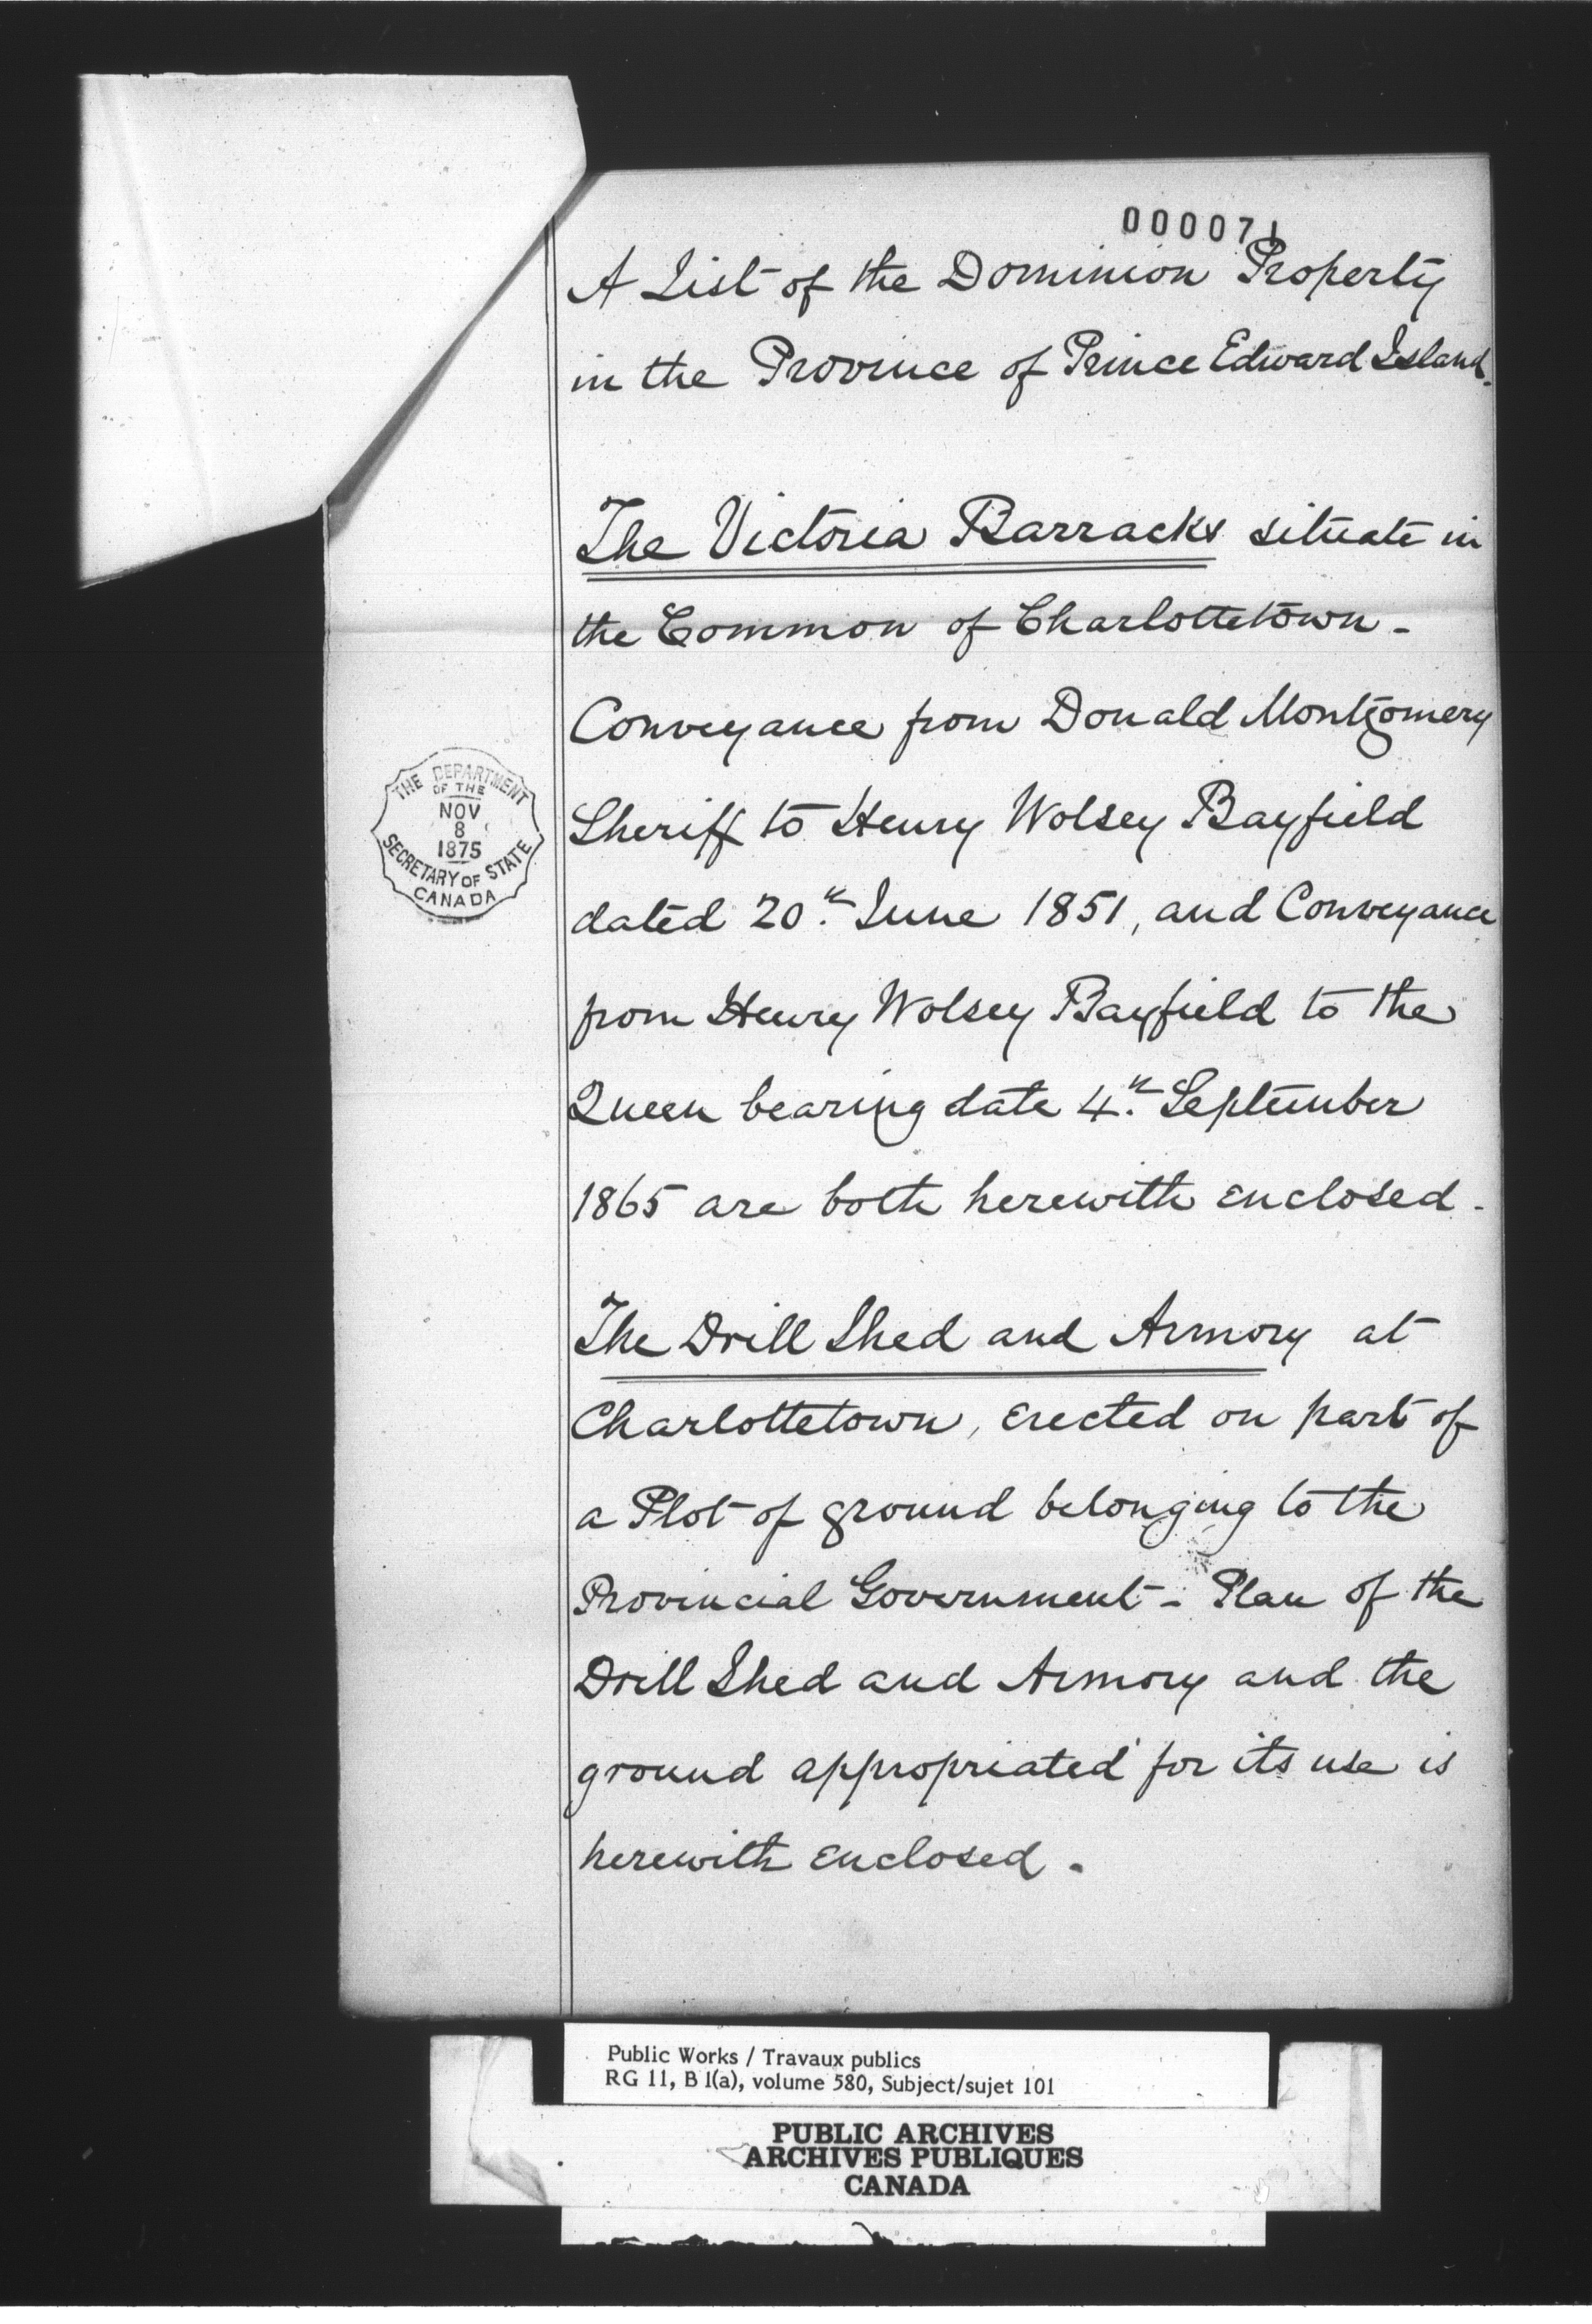 000071
A List of the Dominion Property
in the Province of Prince Edward Island.
The Victoria Barracks situate in
the Common of Charlottetown -
Conveyance from Donald Montgomery
Sheriff to Henry Wolsey Bayfield
dated 20.th June 1851, and Conveyance
from Henry Wolsey Bayfield to the
Queen bearing date 4.th September
1865 are both herewith enclosed -
The Drill Shed and Armory at
Charlottetown, erected on part of
a Plot of ground belonging to the
Provincial Government - Plan of the
Drill Shed and Armory and the
ground appropriated for its use is
herewith enclosed.
THE DEPARTMENT
OF THE
NOV
8
1875
SECRETARY OF STATE
CANADA
Public Works / Travaux publics
RG 11, B 1(a), volume 580, Subject/sujet 101
PUBLIC ARCHIVES
ARCHIVES PUBLIQUES
CANADA